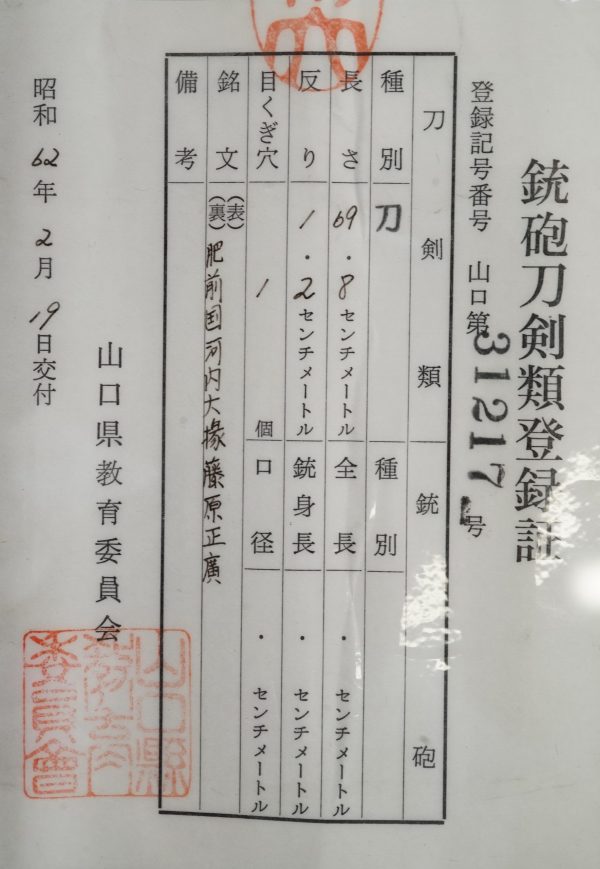 銃砲刀剣類登録証
登録記号番号 山口第31217号
刀剣類 銃砲
種別 刀 種別
長さ 69.8センチメートル 全長 ・センチメートル
反り 1.2センチメートル 銃身長 ・センチメートル
目くぎ穴 1個 口径 ・センチメートル
銘文 (表)(裏)肥前国河内大掾藤原正廣
備考
昭和62年2月19日交付
山口県教育委員会
山口縣
教育
委員會